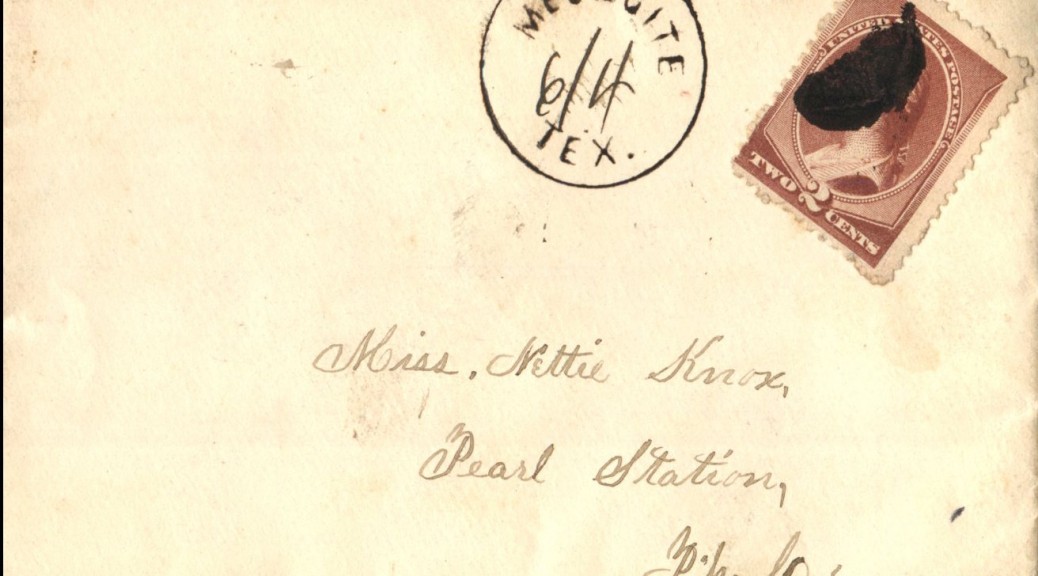 MESQUITE
6/4
TEX.
UNITED STATES POSTAGE
TWO 2 CENTS
Miss. Nettie Knox,
Pearl Station,